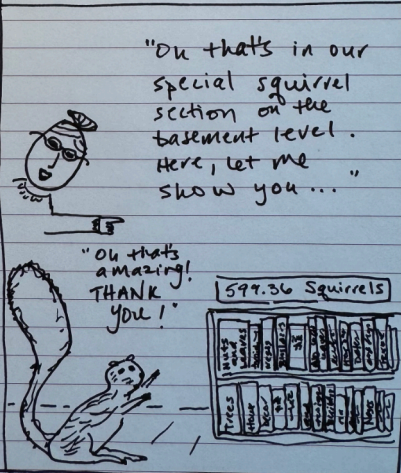 "Oh that's in our
special squirrel
section on the
basement level.
Here, let me
show you..."
"Oh that's
amazing!
THANK
YOU!"
599.36 Squirrels
Nuts
and
leaves
Trees